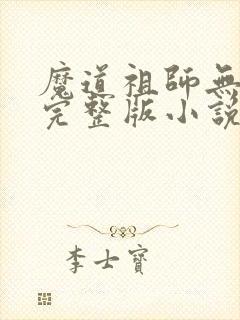 魔道祖師無
完整版小說
李士寶